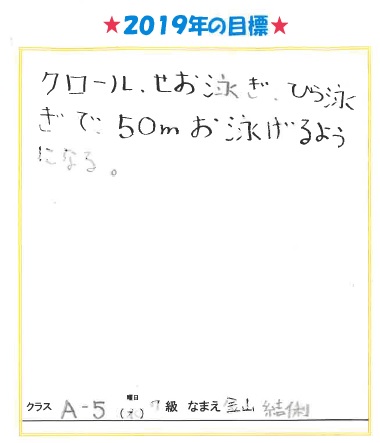 ★2019年の目標★
クロール、せお泳ぎ、ひら泳
ぎで、50mお泳げるよう
になる。
クラス A-5 曜日(水) 級 なまえ 金山